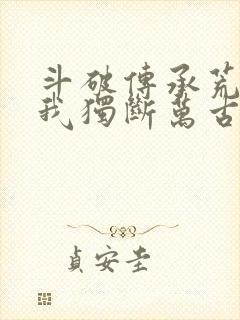 斗破傳承荒
我獨斷萬古
貞安圭